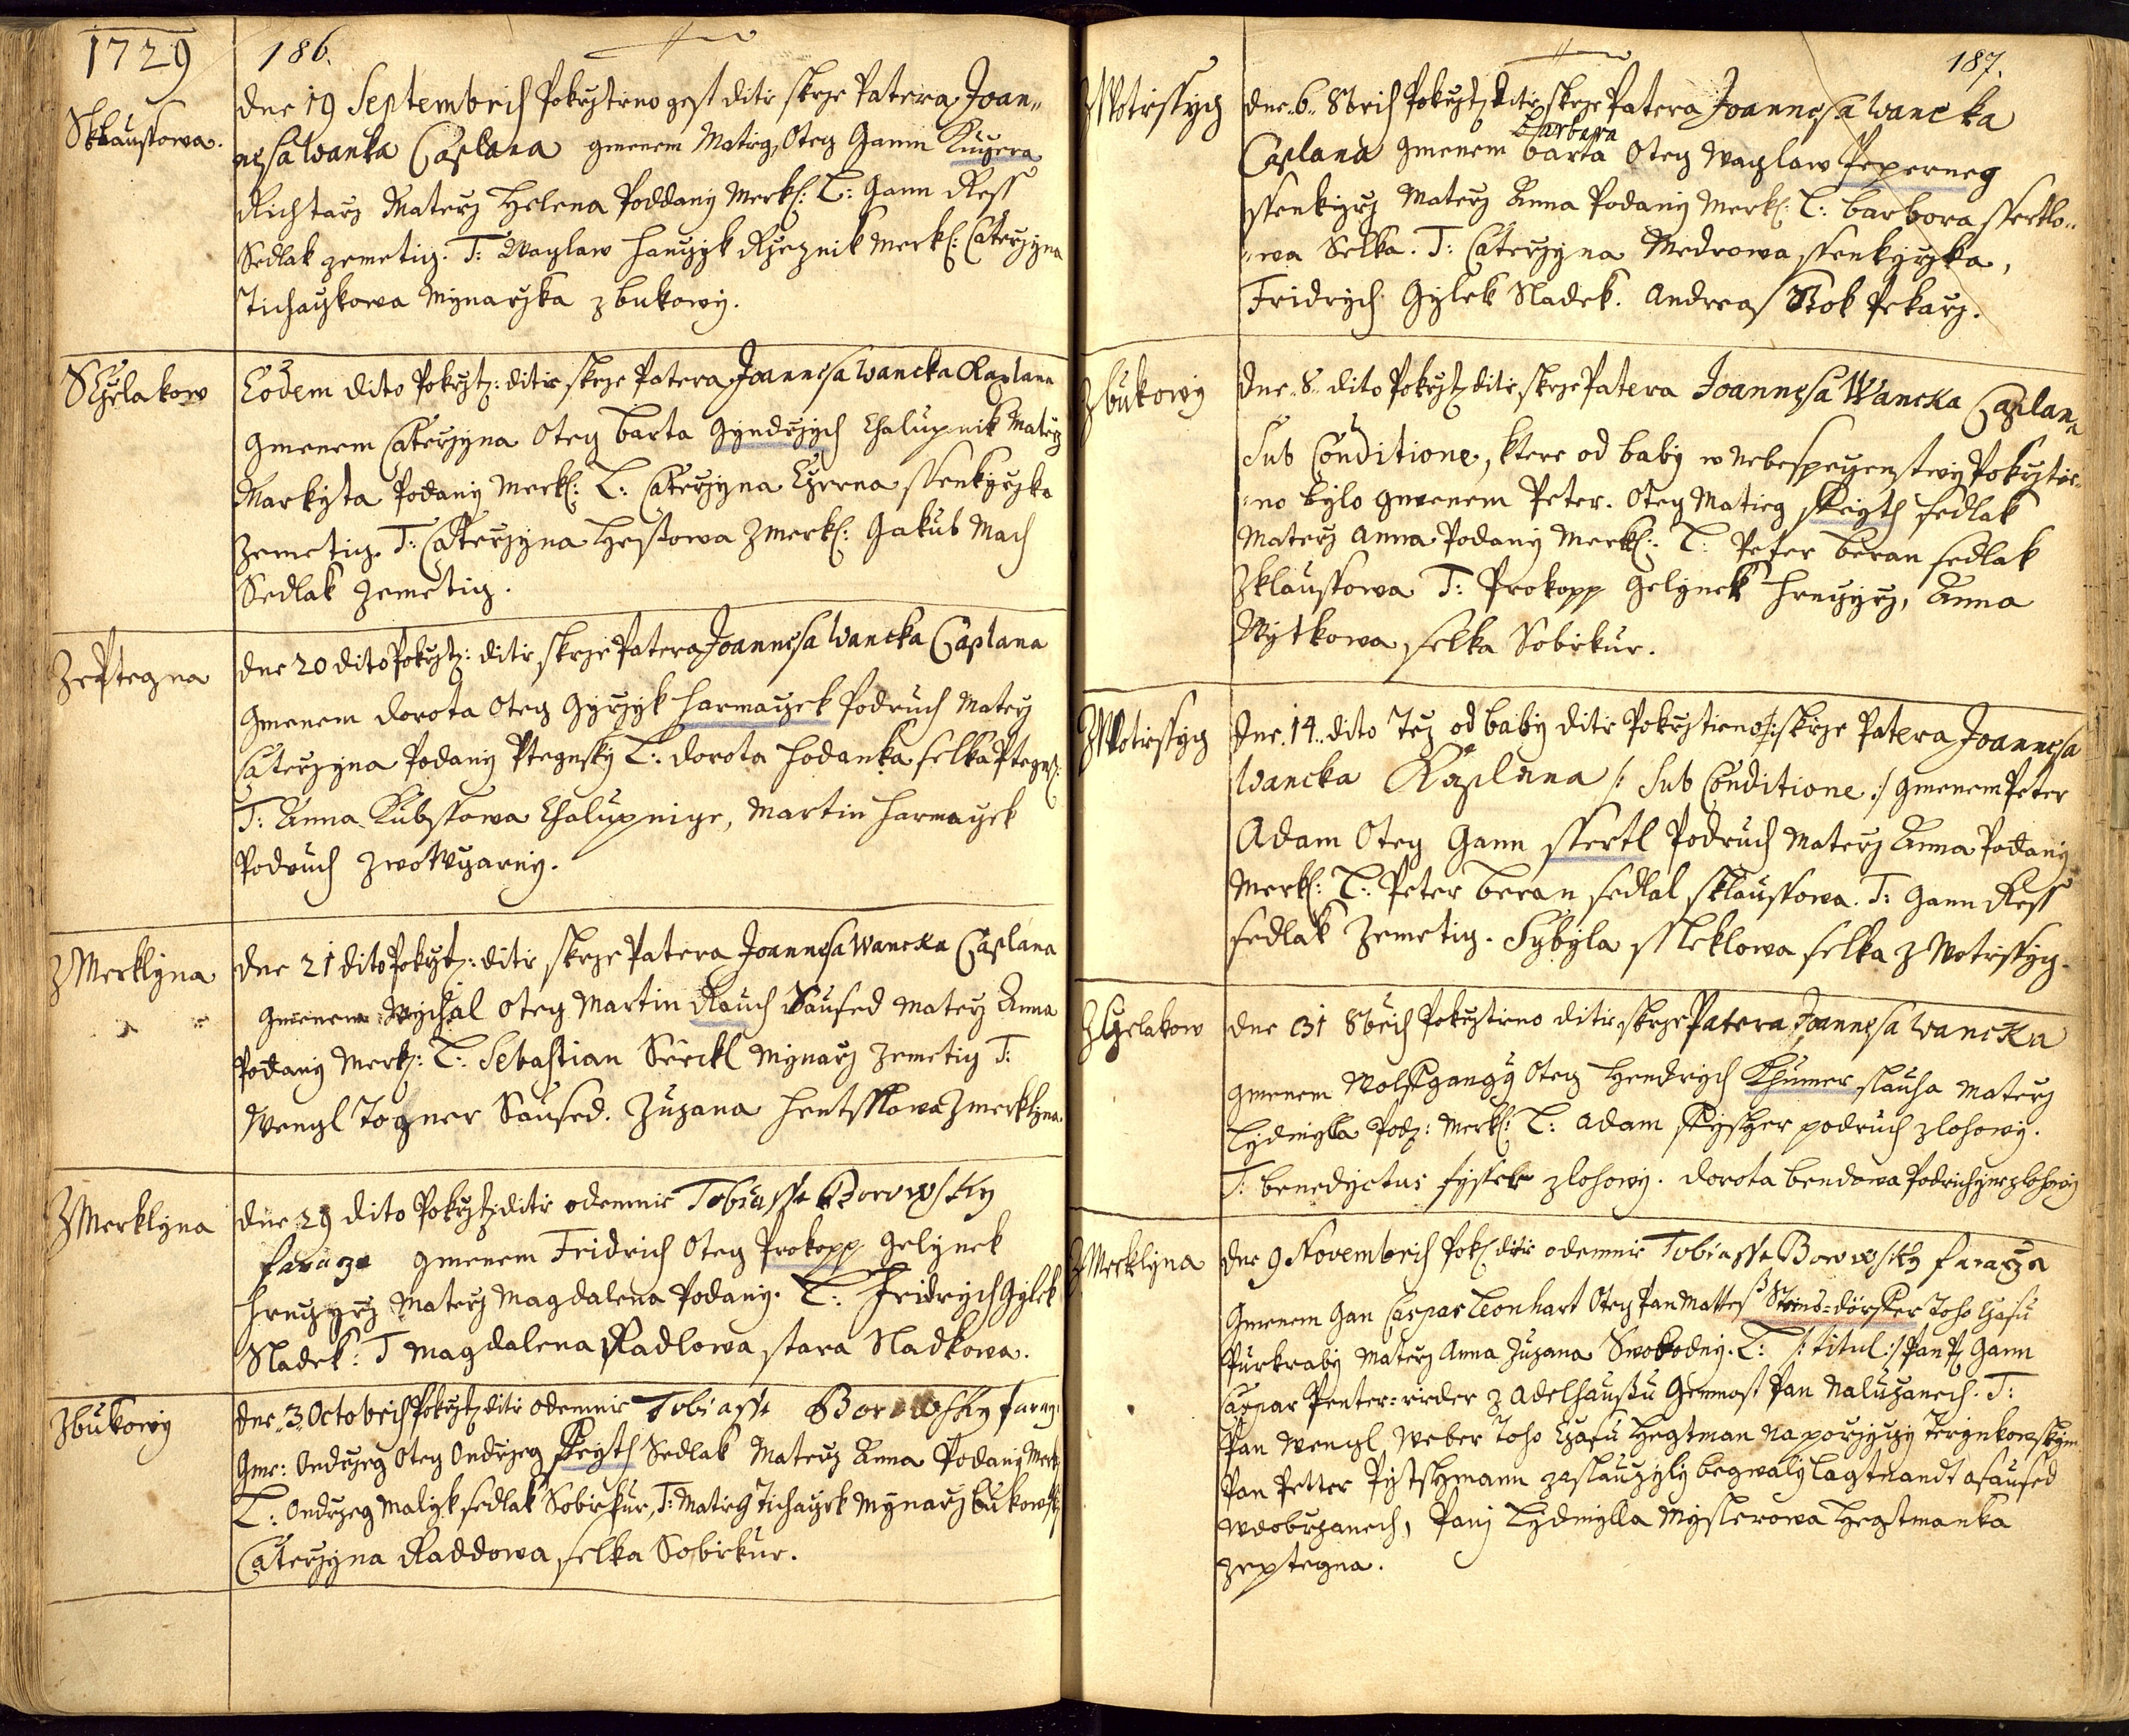 1729
186.
Sklaussowa.
dne 19 Septembris Pokrztieno gest ditie skrze Patera Joan„
nesa Wanka Caplana gmenem Matieg, Otecz Gann Kuczera
Richtarz Materz Helena Poddany Merkl: L: Gann Ress
Sedlak zemeticz. T: Waczlaw Hauzyk Rzeznik Merkl: Caterzyna
Tichaczkowa Mynarzka z bukowy.
S Czelakow
Eodem dito Pokrztz: ditie skrze Patera Joannesa Wancka Kaplana
Gmenem Caterzyna Otecz barta Gyndrzych Chalupnik Materz
Markyta Podany Merkl: L: Caterzyna Czerna ssenkyrzka
Zemeticz. T: Caterzyna Hessowa Zmerkl: Gakub Mach
Sedlak Zemeticz.
Ze Ptegna
dne 20 dito Pokrztz: ditie skrze Patera Joannesa Wancka Caplana
Gmenem dorota Otecz Gyrzyk Harmaczek Podruch Materz
Caterzyna Podany Ptegnsky L: dorota Hodanka selka Ptegns:
T: Anna Kubssowa Chalupnicze, Martin Harmaczek
Podruch zwowczarny.
Z Merklyna
dne 21 dito Pokrztz: ditie skrze Patera Joannesa Wancka Caplana
Gmenem Mychal Otecz Martin Rauch Saused Materz Anna
Podany Merkl: L: Sebastian Serckl Mynarz Zemeticz T:
Wenczl Toczner Saused. Zuzana Hentsslowa Zmerklyna.
Z Merklyna
dne 29 dito Pokrztz ditie odemnie Tobiasse Borowsky
faraze gmenem Fridrich Otecz Prokopp Gelynek
Hrnczyrz Materz Magdalena Podany. L: Fridrych Gylek
Sladek: T Magdalena Radlowa stara Sladkowa.
Z bukowy
dne„ 3„ Octobris Pokrztz ditie odemnie Tobiasse Borowsky faraz:
Gme: Ondrzeg Otecz Ondrzeg Skrzyth Sedlak Materz Anna Podany Merk:
L: Ondrzeg Malyk sedlak Sobiekur, T: Matieg Tichaczek Mynarz bukowsky
Caterzyna Raddowa selka Sobiekur.
187.
Z Wotiessycz
dne„ 6„ 8bris Pokrztz ditie skrze Patera Joannesa Wancka
Barbara
Caplana gmenem barta Otecz Waczlaw Peperneg
ssenkyrz Materz Anna Podany Merkl: L: barbora ssertlo„
„wa Selka. T: Caterzyna Medrowa ssenkyrzka,
Fridrych Gylek Sladek. Andreas Bok Pekarz.
Z bukowy
dne„ 8„ dito Pokrztz ditie skrze Patera Joannesa Wancka Caplan„
Sub Conditione, ktere od baby w Nebespeczenstwy Pokrztie„
„no bylo gmenem Peter. Otecz Matieg Skrzyth sedlak
Materz Anna Podany Merkl: L: Peter beran sedlak
Zklaussowa T: Prokopp Gelynek Hrnczyrz, Anna
Wytkowa selka Sobiekur.
Z Wotiessycz
dne„ 14„ dito Tez od baby ditie Pokrztieno /: skrze Patera Joannesa
Wancka Kaplana /: Sub Conditione :/ gmenem Peter
Adam Otecz Gann ssertl Podruch Materz Anna Podany
Merkl: L: Peter beran sedlal sklaussowa. T: Gann Ress
sedlak Zemeticz. Sybyla ssleklowa selka z Wotiessycz.
Z Czelakow
dne 31 8bris Pokrztieno ditie skrze Patera Joannesa Wancka
gmenem Wolffgangg Otecz Hendrych Khumer slauha Materz
Lydmylla Podz: Merkl: L: Adam Fysscher podruch zlohowy.
T: benedyctus fysser zlohowy. dorota bendowa Podruchyne zlohowy
Z Mercklyna
dne 9 Novembris Pokrz ditie odemnie Tobiasse Borowsky faraza
Gmenem Gan Caspar Leonhart Otecz Pan Mattes Steins=dörffer Toho Czasu
Purkraby Materz Anna Zuzana Swobodny. L: /: titul :/ Pan P: Gann
Caspar Penter=rieder z Adelhaussu Gemnost Pan Naluzanech. T:
Pan Wenczl Weber Toho Czasu Hegtman Na porzyczy Terynkowskym
Pan Petter Pytschmann zaslauzyly begwaly lagtnandt asaused
Wdobrzanech, Pany Lydmylla Myslerowa Hegtmanka
zeptegna.